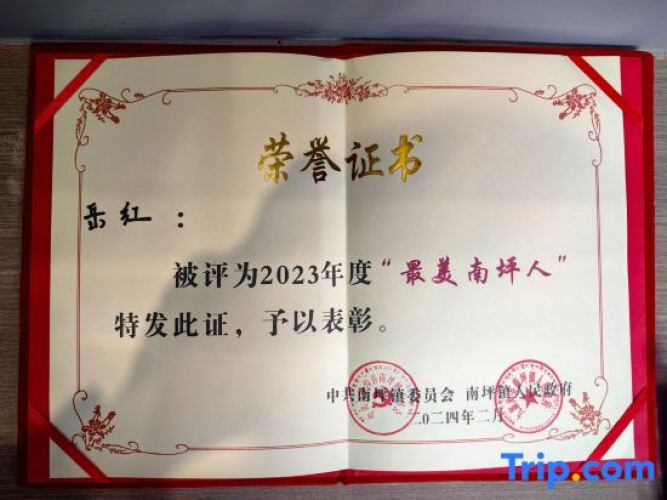 荣誉证书
岳红：
被评为2023年度“最美南坪人”
特发此证，予以表彰。
中共南坪镇委员会 南坪镇人民政府
二〇二四年二月
Trip.com